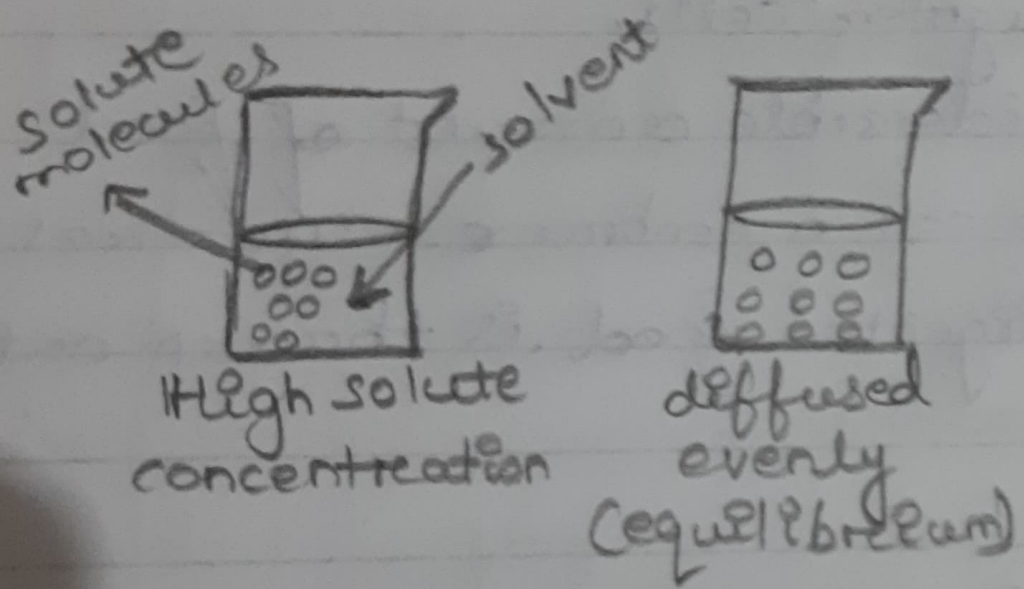 solute
molecules
solvent
High solute
concentreation
diffused
evenly
(equilibreium)